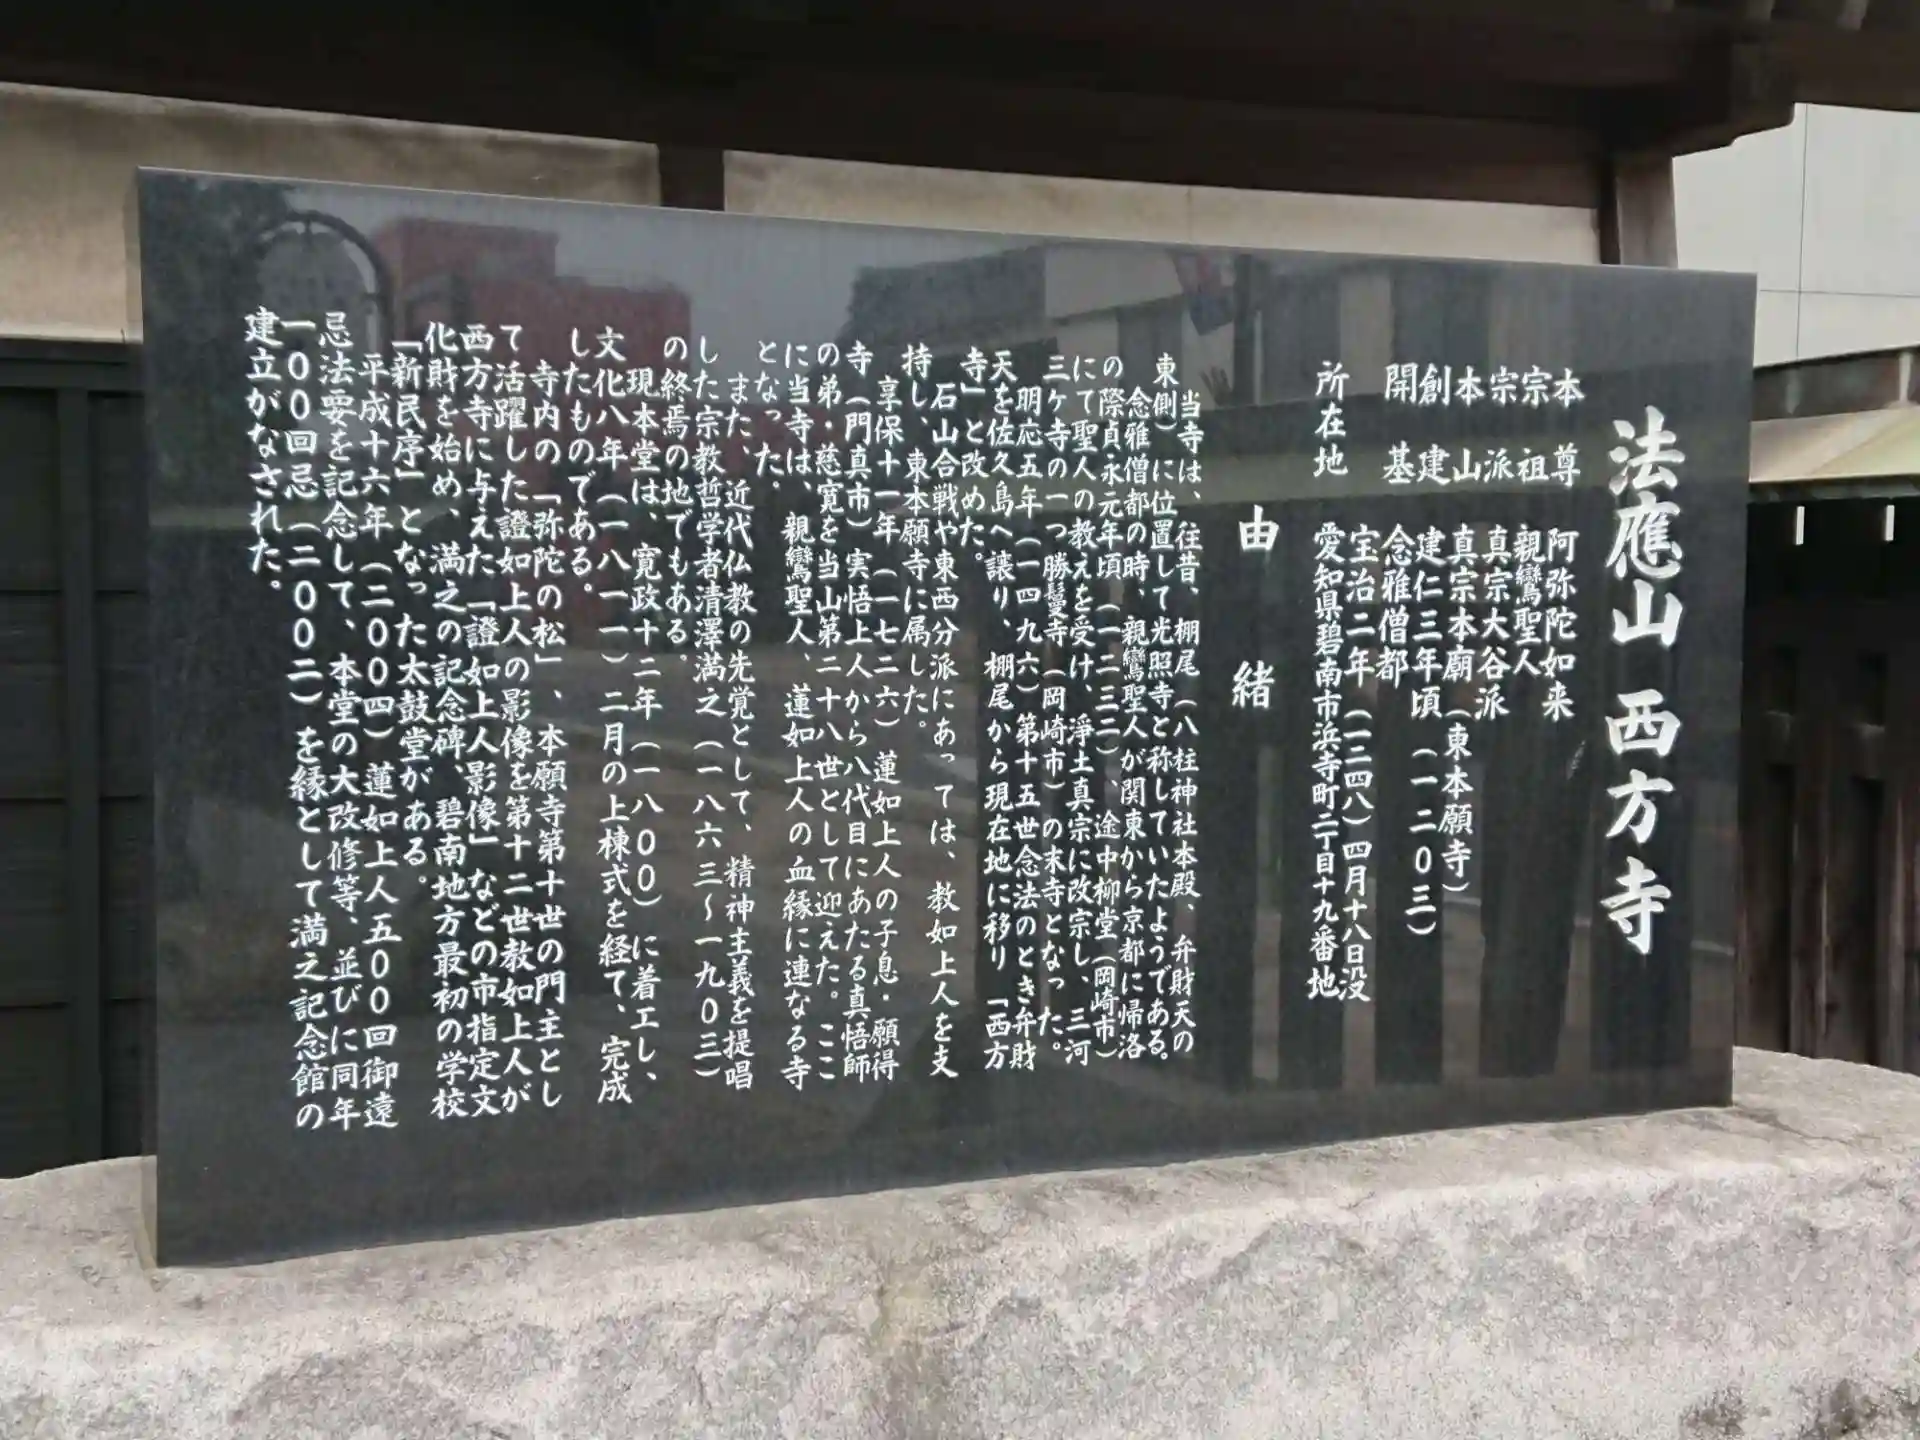 法應山 西方寺
本尊 阿弥陀如来
宗祖 親鸞聖人
宗派 真宗大谷派
本山 真宗本廟(東本願寺)
創建 建仁三年頃(一二0三)
開基 念雅僧都
宝治二年(一二四八)四月十八日没
所在地 愛知県碧南市浜寺町二丁目十九番地
由緒
当寺は、往昔、棚尾(八柱神社本殿、弁財天の
東側)に位置して光照寺と称していたようである。
念雅僧都の時、親鸞聖人が関東から京都に帰洛
の際貞永元年頃(一二三二)、途中柳堂(岡崎市)
にて聖人の教えを受け、浄土真宗に改宗し、三河
三ケ寺の一つ勝鬘寺(岡崎市)の末寺となった。
明応五年(一四九六)第十五世念法のとき弁財
天を佐久島へ譲り、棚尾から現在地に移り「西方
寺」と改めた。
石山合戦や東西分派にあっては、教如上人を支
持し、東本願寺に属した。
享保十一年(一七二六)蓮如上人の子息・願得
寺(門真市)実悟上人から八代目にあたる真悟師
の弟・慈寛を当山第二十八世として迎えた。ここ
に当寺は、親鸞聖人、蓮如上人の血縁に連なる寺
となった。
また、近代仏教の先覚として、精神主義を提唱
した宗教哲学者清澤満之(一八六三〜一九0三)
の終焉の地でもある。
現本堂は、寛政十二年(一八00)に着工し、
文化八年(一八一一)二月の上棟式を経て、完成
したものである。
寺内の「弥陀の松」、本願寺第十世の門主とし
て活躍した證如上人の影像を第十二世教如上人が
西方寺に与えた「證如上人影像」などの市指定文
化財を始め、満之の記念碑、碧南地方最初の学校
「新民序」となった太鼓堂がある。
平成十六年(二00四)蓮如上人五00回御遠
忌法要を記念して、本堂の大改修等、並びに同年
一00回忌(二00二)を縁として満之記念館の
建立がなされた。